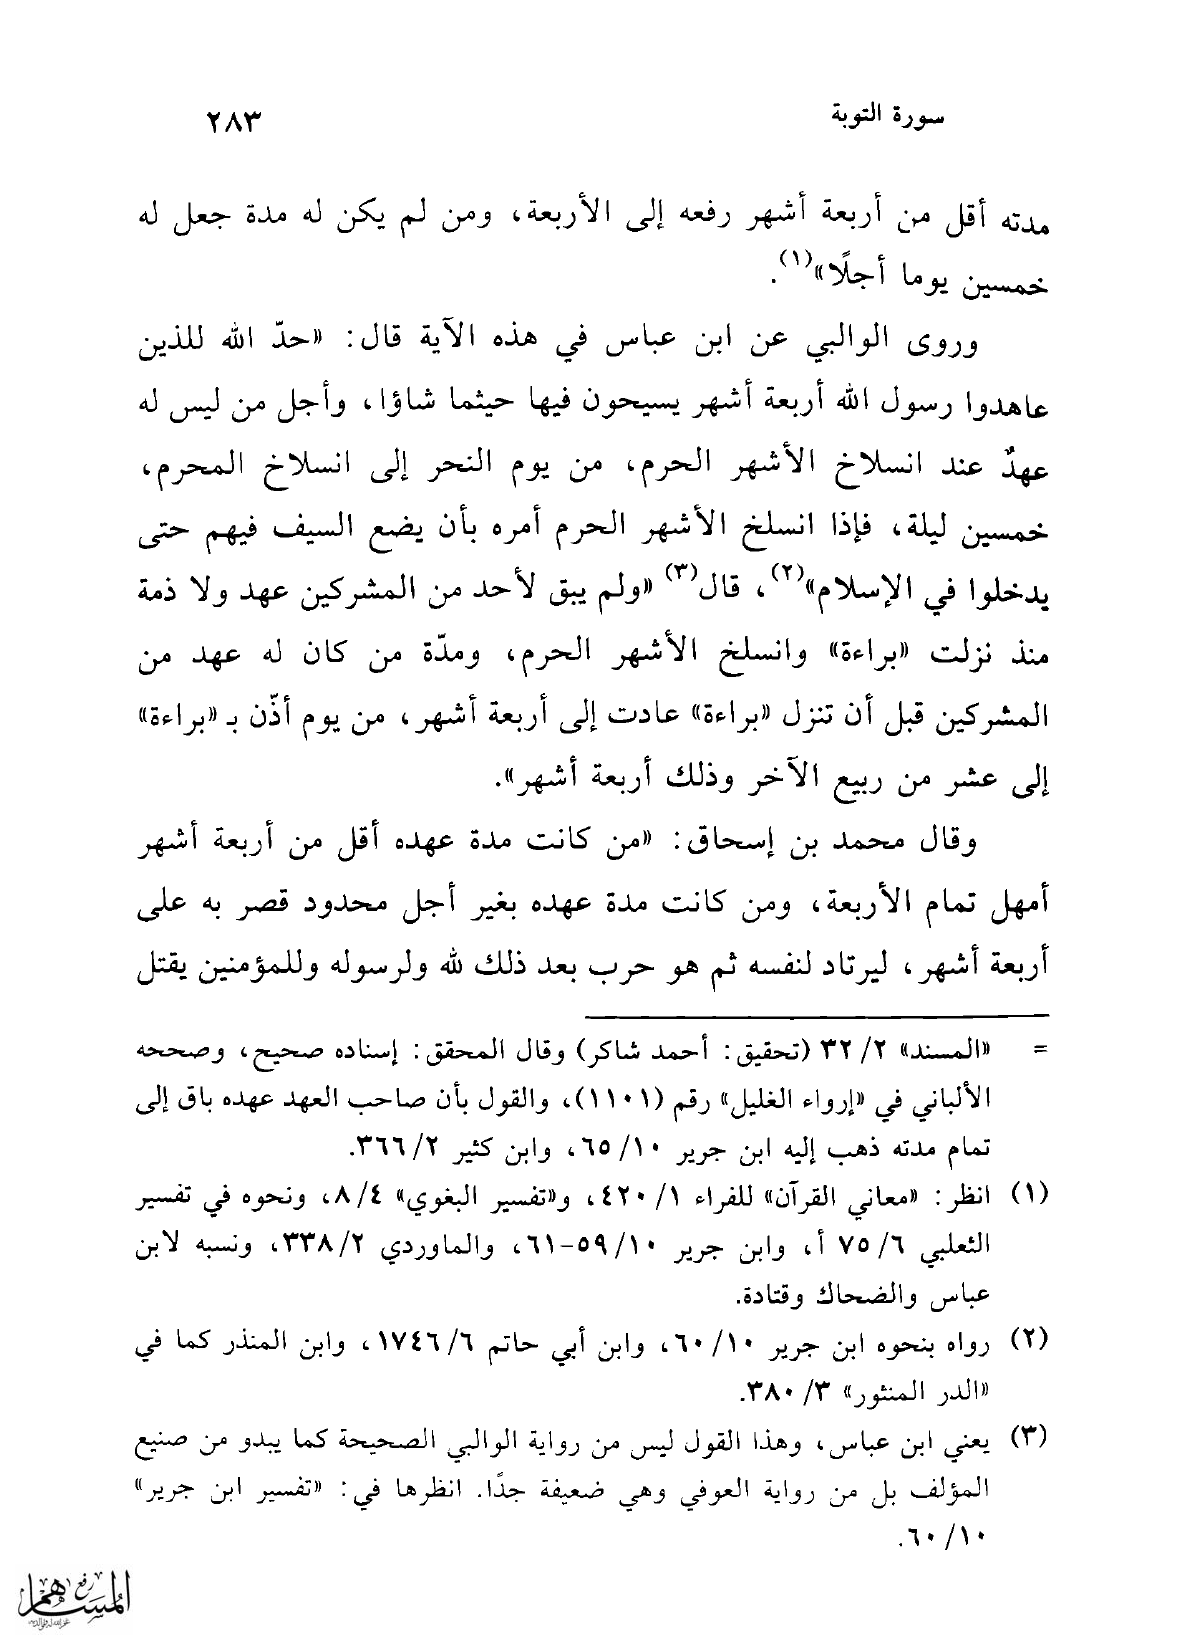 سورة التوبة ٢٨٣
مدته أقل من أربعة أشهر رفعه إلى الأربعة، ومن لم يكن له مدة جعل له
خمسين يوما أجلًا»(١).
وروى الوالبي عن ابن عباس في هذه الآية قال: «حدّ الله للذين
عاهدوا رسول الله أربعة أشهر يسيحون فيها حيثما شاؤا، وأجل من ليس له
عهدٌ عند انسلاخ الأشهر الحرم، من يوم النحر إلى انسلاخ المحرم،
خمسين ليلة، فإذا انسلخ الأشهر الحرم أمره بأن يضع السيف فيهم حتى
يدخلوا في الإسلام»(٢)، قال(٣) «ولم يبق لأحد من المشركين عهد ولا ذمة
منذ نزلت «براءة» وانسلخ الأشهر الحرم، ومدّة من كان له عهد من
المشركين قبل أن تنزل «براءة» عادت إلى أربعة أشهر، من يوم أذّن بـ «براءة»
إلى عشر من ربيع الآخر وذلك أربعة أشهر».
وقال محمد بن إسحاق: «من كانت مدة عهده أقل من أربعة أشهر
أمهل تمام الأربعة، ومن كانت مدة عهده بغير أجل محدود قصر به على
أربعة أشهر، ليرتاد لنفسه ثم هو حرب بعد ذلك لله ولرسوله وللمؤمنين يقتل
= «المسند» ٢/ ٣٢ (تحقيق: أحمد شاكر) وقال المحقق: إسناده صحيح، وصححه
الألباني في «إرواء الغليل» رقم (١١٠١)، والقول بأن صاحب العهد عهده باق إلى
تمام مدته ذهب إليه ابن جرير ١٠/ ٦٥، وابن كثير ٢/ ٣٦٦.
(١) انظر: «معاني القرآن» للفراء ١/ ٤٢٠، و«تفسير البغوي» ٤/ ٨، ونحوه في تفسير
الثعلبي ٦/ ٧٥ أ، وابن جرير ١٠/ ٥٩-٦١، والماوردي ٢/ ٣٣٨، ونسبه لابن
عباس والضحاك وقتادة.
(٢) رواه بنحوه ابن جرير ١٠/ ٦٠، وابن أبي حاتم ٦/ ١٧٤٦، وابن المنذر كما في
«الدر المنثور» ٣/ ٣٨٠.
(٣) يعني ابن عباس، وهذا القول ليس من رواية الوالبي الصحيحة كما يبدو من صنيع
المؤلف بل من رواية العوفي وهي ضعيفة جدًا. انظرها في: «تفسير ابن جرير»
١٠/ ٦٠.